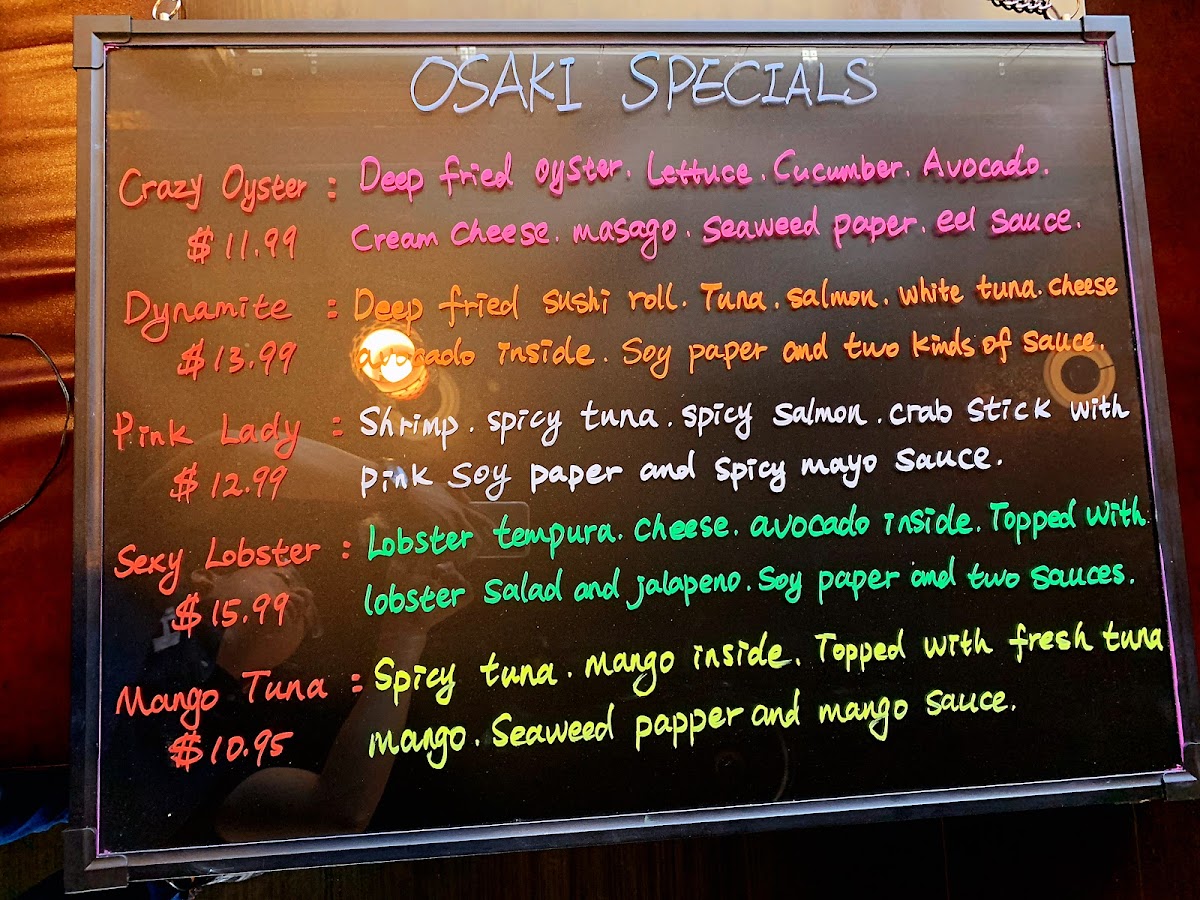 OSAKI SPECIALS
Crazy Oyster : Deep fried oyster. Lettuce. Cucumber. Avocado.
$11.99 Cream cheese. masago. seaweed paper. eel sauce.
Dynamite : Deep fried sushi roll. Tuna. salmon. white tuna. cheese
$13.99 avocado inside. Soy paper and two kinds of sauce.
Pink Lady : Shrimp. spicy tuna. spicy salmon. crab stick with
$12.99 pink soy paper and spicy mayo sauce.
Sexy Lobster : Lobster tempura. cheese. avocado inside. Topped with
$15.99 lobster salad and jalapeno. Soy paper and two sauces.
Mango Tuna : Spicy tuna. mango inside. Topped with fresh tuna
$10.95 mango. Seaweed papper and mango sauce.